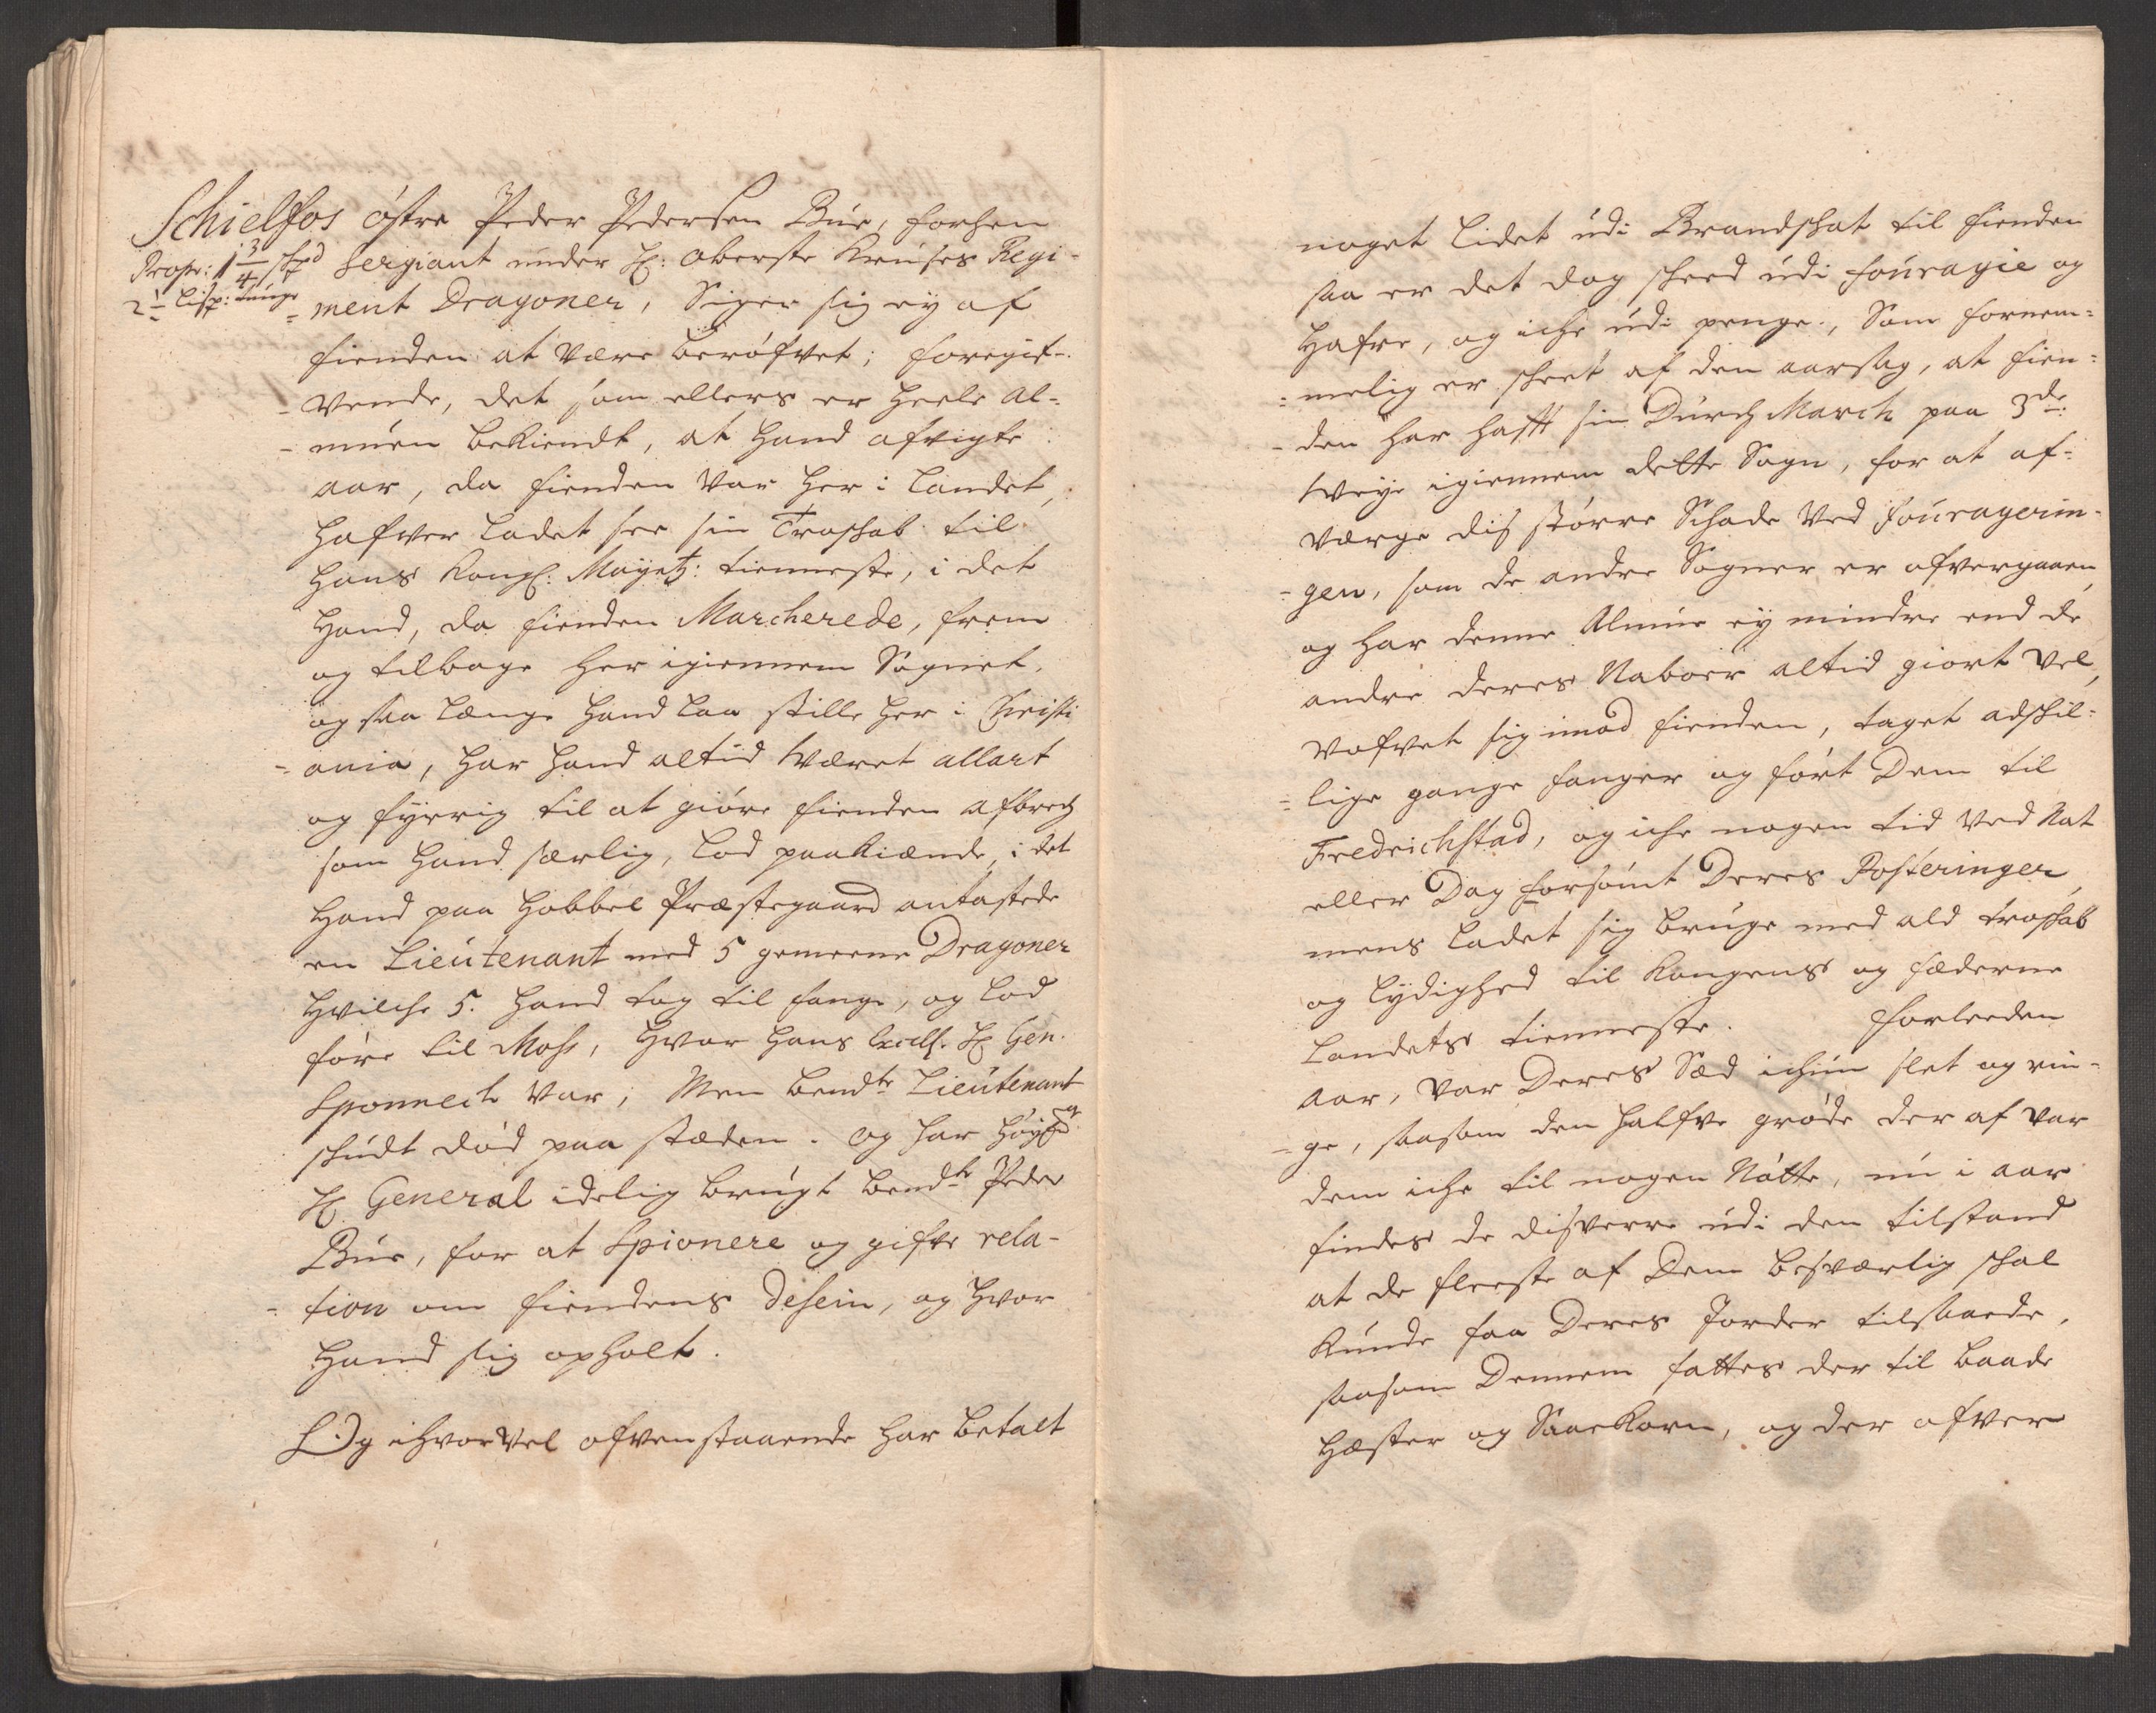 Schielfos östre Peder Pedersen Búe, forhen
Propr: 1 3/4 schpd Sergiant under H: Oberste Krúses Regi-
2 1/2 lisp: tunge - ment Dragoner, Siger sig ey af
fienden at være berófvet; foregif-
- vende, det som ellers er heele Al-
- múen bekiendt, at hand afvigte
aar, da fienden var her i Landet,
hafver ladet see sin Troskab til
Hans Kongl: Mayetz: tienneste, i det
Hand, da fienden Marcherede, frem
og tilbage her igiennem Sognet,
og saa længe hand laa stille her i Christi
- ania, har hand altid været allart
og fyrrig til at gióre fienden afbrech
som hand særlig, lod paakiænde, i det
Hand paa Hobbel Præstegaard antastede
en Lieútenant med 5 gemeene Dragoner
hvilche 5. hand tog til fange, og lod
fóre til Moss, hvor Hans Excell. H Gen.
Sponnech var; Men bemdte Lieútenant
skúdt dód paa stæden. og har hóybr
H General idelig brúgt bemdte Peder
Búe, for at Spionere og gifve rela-
- tion om fiendens desein, og hvor
Hand sig opholt.
Og ihvorvel ofvenstaaende har betalt
noget lidet údi Brandskat til fienden
saa er det dog skeed údi foúragie og
Hafre, og iche údi penge, Som fornem-
- melig er skeet af den aarsag, at fien-
- den har hafft sin Dúrch March paa 3de:
tveye igiennem dette Sogn, for at af-
værge dis større Schade ved foúragerin-
- gen, som de andre Sogner er ofvergaaen,
og har denne Almúe ey mindre end de
andre deres Naboer altid giort vel,
vofvet sig imod fienden, taget adskil-
- lige gange fanger og fórt Dem til
Fredrichstad, og iche nogen tid ved Nat
eller Dag forsómt Deres Posteringer,
mens ladet sig brúge med ald troskab
og lydighed til Kongens og fæderne
Landets tienneste. forleeden
Aar, var Deres Sæd ichún slet og rin-
- ge, saasom den halfve gróde der af var
dem iche til nogen Nótte, nú i aar
findes de disverre údi den tilstand
at de fleeste af Dem besværlig skal
kúnde faa Deres Jorder tilsaaede,
saasom Dennem fattes der til baade
Hæster og Saaekorn, og der ofver